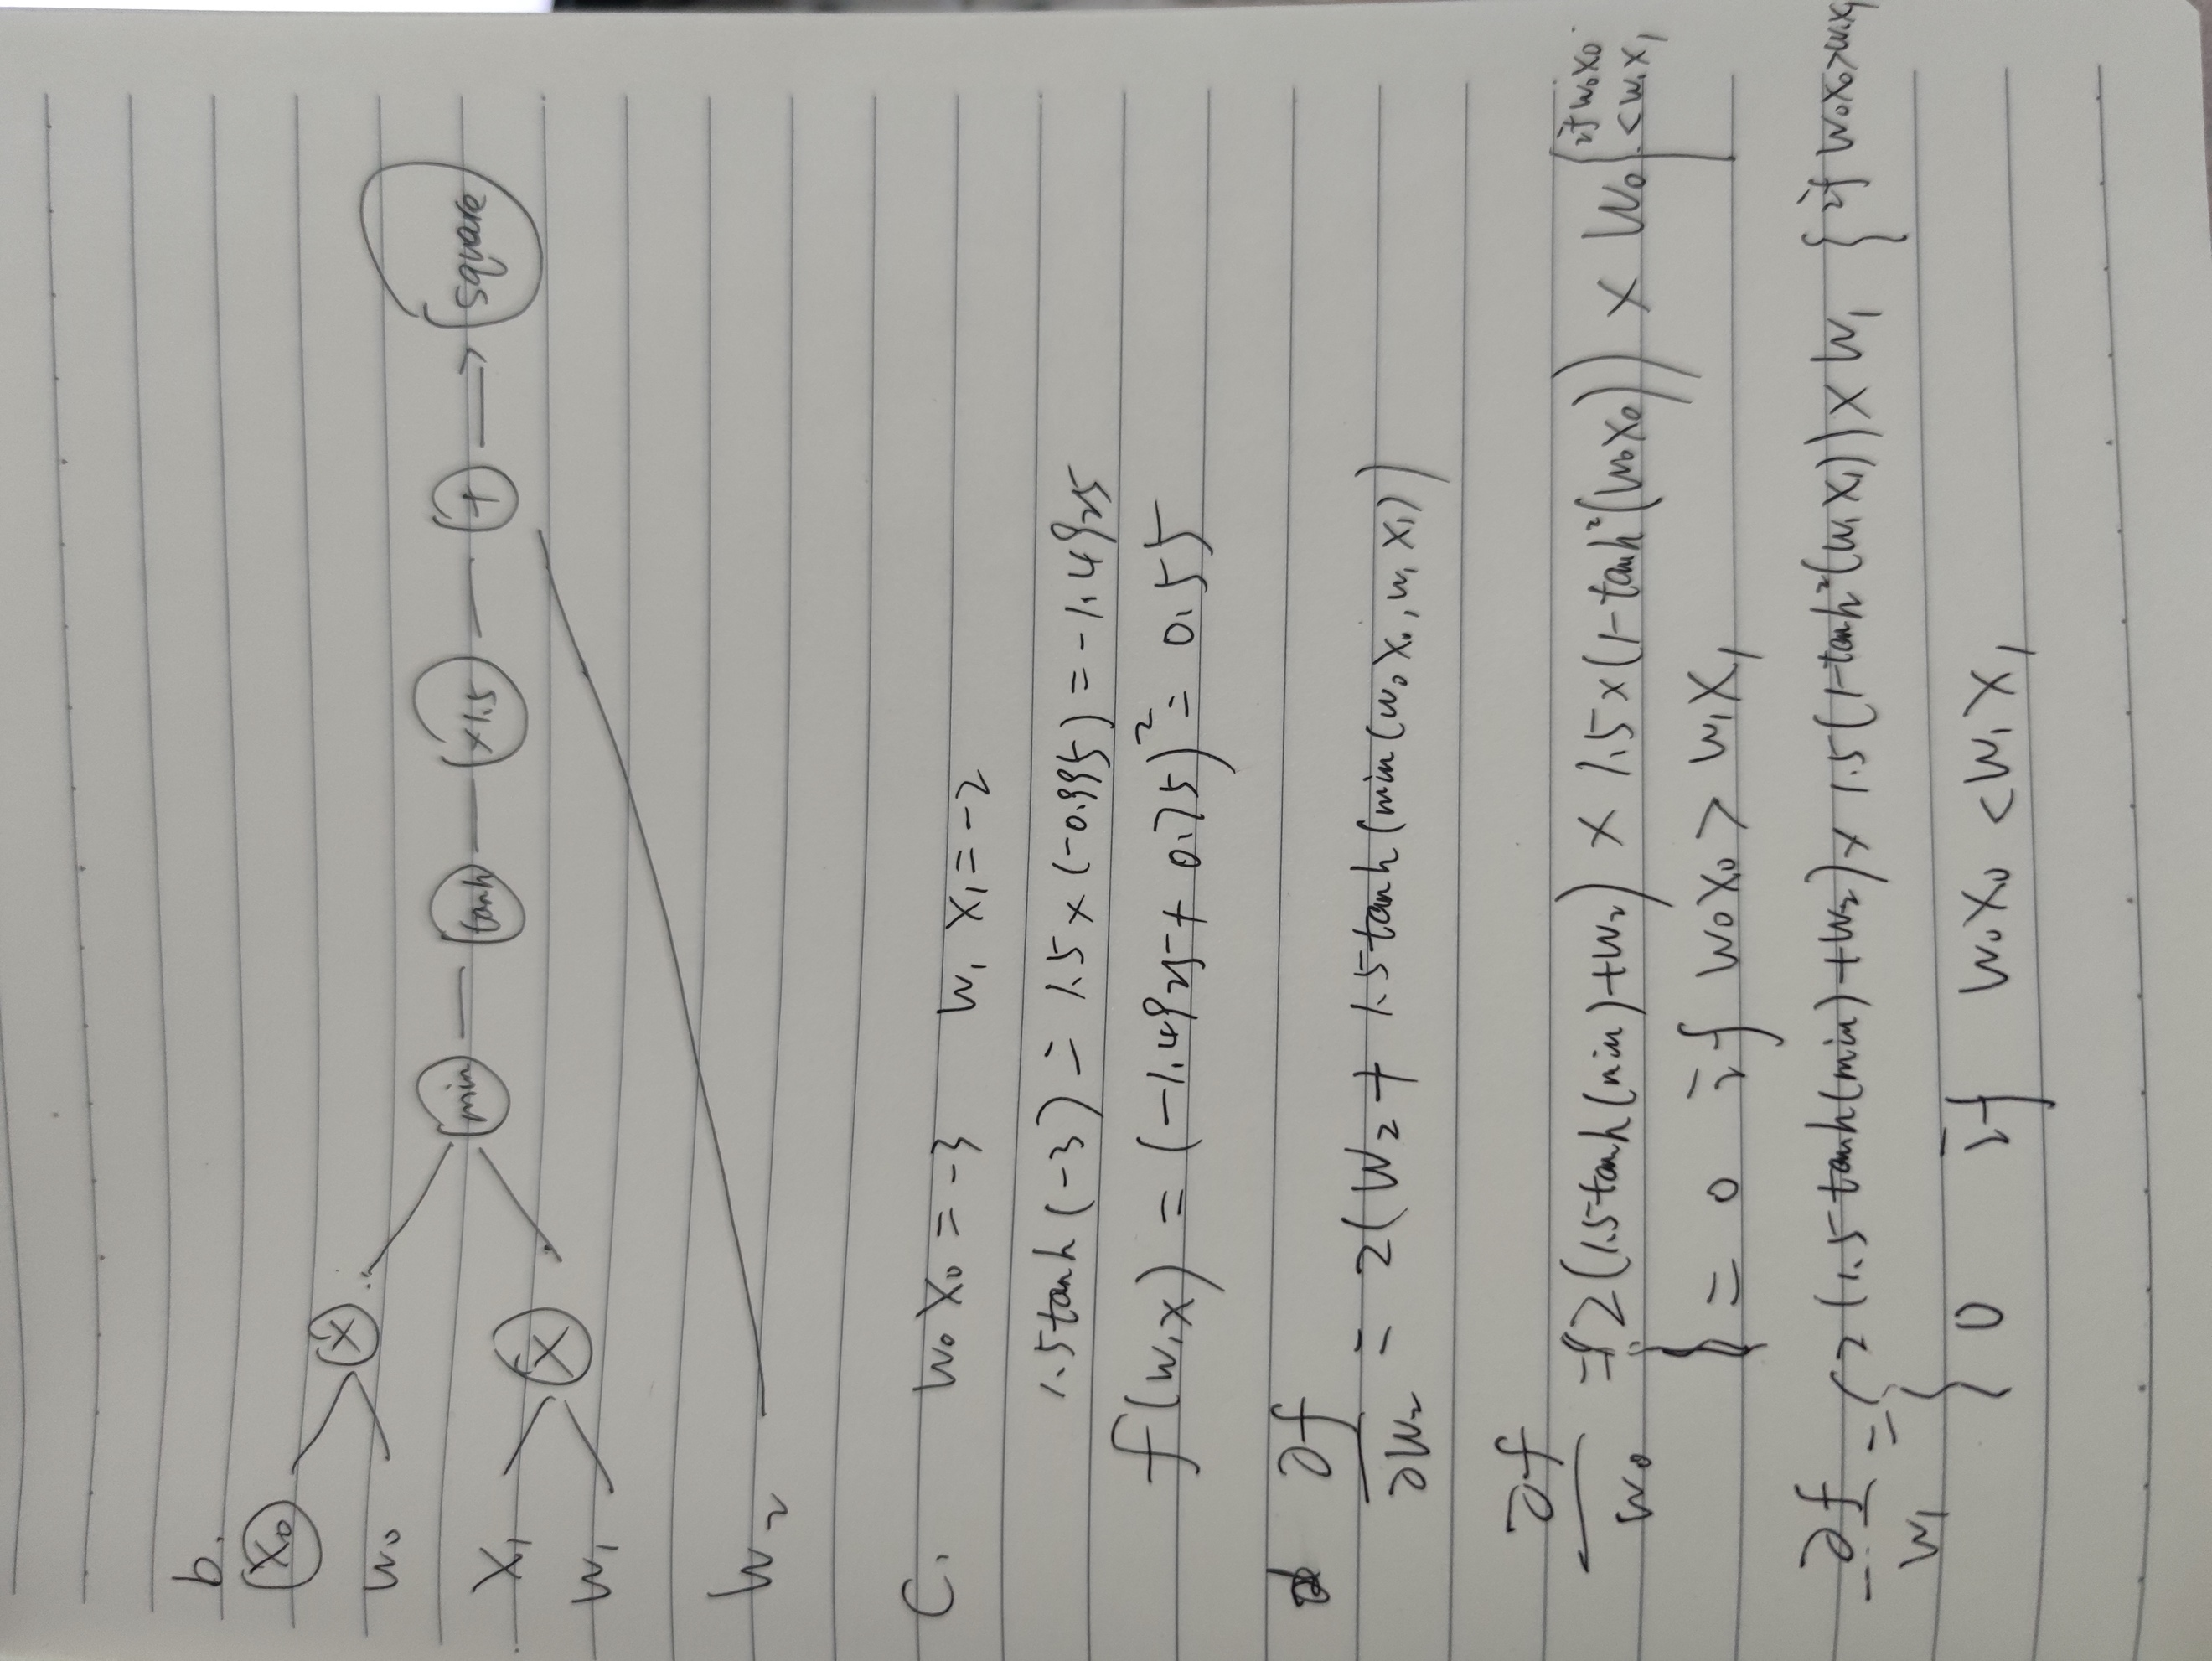 b.
X₀ × W₀
min — tanh — ×1.5 — + → square
X₁ × W₁
W₂
C. W₀X₀ = -3 W₁X₁ = -2
1.5tanh(-3) = 1.5×(-0.995) = -1.4925
f(w,x) = (-1.4925+0.75)² = 0.55
∂f/∂W₂ = 2(W₂ + 1.5tanh(min(w₀x₀, w₁x₁))
∂f/W₀ = { 2(1.5tanh(min)+W₂) × 1.5×(1-tanh²(W₀X₀)) × W₀ { if W₀X₀ < W₁X₁
} = 0 if W₀X₀ > W₁X₁
∂f/W₁ = { 2(1.5tanh(min)+W₂) × 1.5(1-tanh²(W₁X₁)) × W₁ } if W₀X₀>W₁X₁
{ 0 if W₀X₀ < W₁X₁